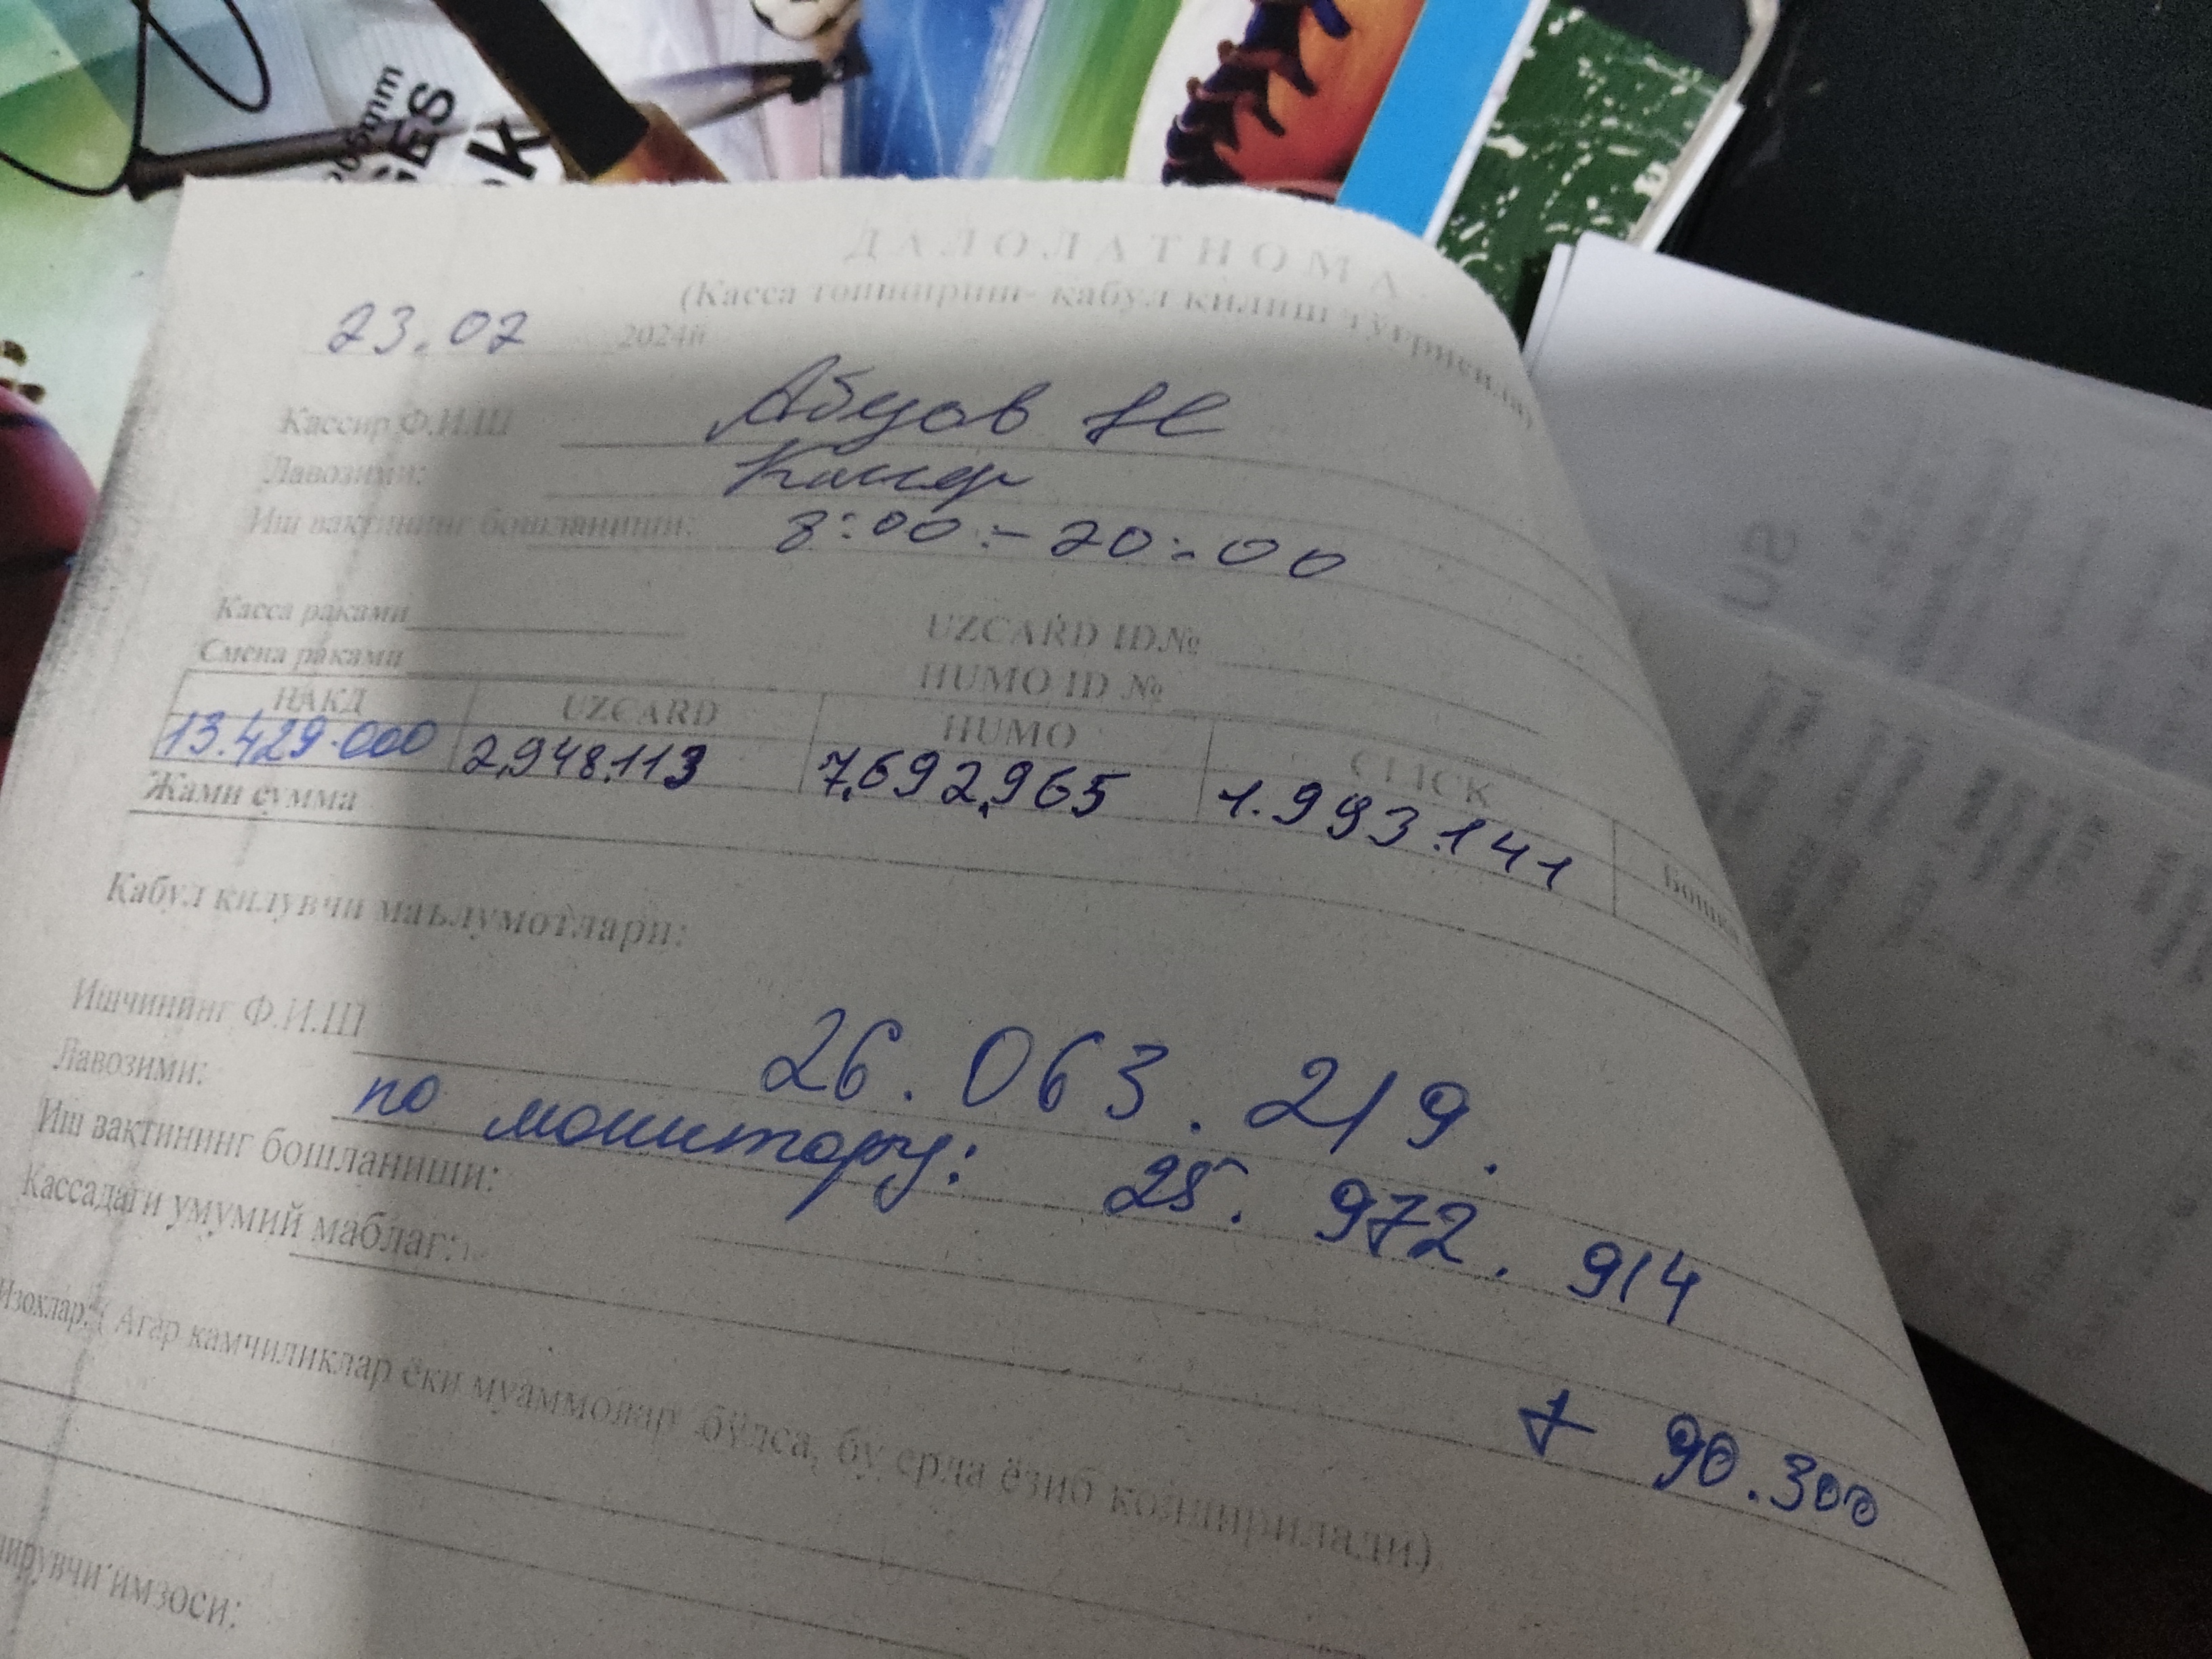 ДАЛОЛАТНОМА
(Касса топшириш- кабул килиш тўғрисида)
23.07 2024й
Кассир Ф.И.Ш
Лавозими:
Иш вақтининг бошланиши: 8:00 - 20:00
Касса раками
UZCARD ID№
Смена раками
HUMO ID №
НАКД UZCARD HUMO CLICK
13.429.000 2,948.113 7,692,965 1.993.141
Жами сумма
Кабул килувчи маълумотлари:
Ишчининг Ф.И.Ш 26.063.219.
Лавозими: по монитору: 25.972.914
Иш вақтининг бошланиши:
Кассадаги умумий маблағ:
+ 90.300
Изохлар: ( Агар камчиликлар ёки муаммолар бўлса, бу ерда ёзиб колдирилади)
имзоси: